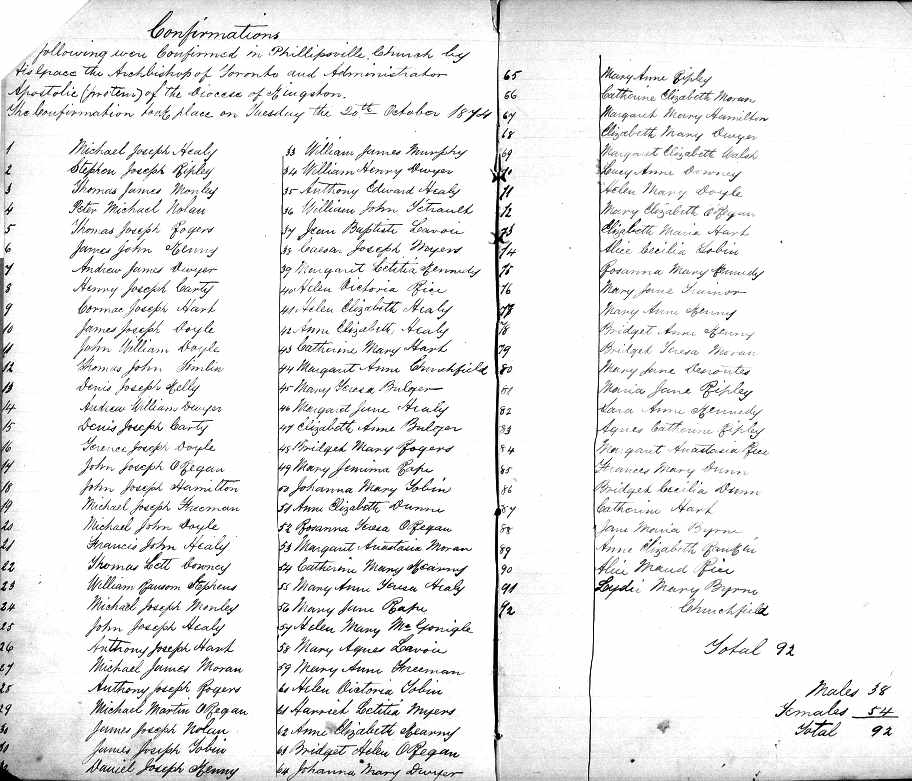 Confirmations
following were Confirmed in Phillipsville Church by
His Grace the Archbishop of Toronto and Administrator
Apostolic (protem) of the Diocese of Kingston.
The Confirmation took place on Tuesday the 20th October 1874
1 Michael Joseph Healy
2 Stephen Joseph Ripley
3 Thomas James Monley
4 Peter Michael Nolan
5 Thomas Joseph Rogers
6 James John Kenny
7 Andrew James Dwyer
8 Henry Joseph Carty
9 Cormac Joseph Hart
10 James Joseph Doyle
11 John William Doyle
12 Thomas John Timlin
13 Denis Joseph Kelly
14 Andrew William Dwyer
15 Denis Joseph Carty
16 Terence Joseph Doyle
17 John Joseph O'Regan
18 John Joseph Hamilton
19 Michael Joseph Freeman
20 Michael John Doyle
21 Francis John Healy
22 Thomas Lett Downey
23 William Ransom Stephens
24 Michael Joseph Monley
25 John Joseph Healy
26 Anthony Joseph Hart
27 Michael James Moran
28 Anthony Joseph Rogers
29 Michael Martin O'Regan
30 James Joseph Nolan
31 James Joseph Tobin
Daniel Joseph Kenny
33 William James Murphy
34 William Henry Dwyer
35 Anthony Edward Healy
36 William John Tetrault
37 Jean Baptiste Lavoie
38 Caesar Joseph Meyers
39 Margaret Letitia Kennedy
40 Helen Victoria Rice
41 Helen Elizabeth Healy
42 Anne Elizabeth Healy
43 Catherine Mary Hart
44 Margaret Anne Churchfield
45 Mary Teresa Bulger
46 Margaret Jane Healy
47 Elizabeth Anne Bulger
48 Bridget Mary Rogers
49 Mary Jemima Rape
50 Johanna Mary Tobin
51 Anne Elizabeth Dunne
52 Rosanna Teresa O'Regan
53 Margaret Anastasia Moran
54 Catherine Mary Kearny
55 Mary Anne Teresa Healy
56 Mary Jane Rape
57 Helen Mary McGonigle
58 Mary Agnes Lavoie
59 Mary Anne Freeman
60 Helen Victoria Tobin
61 Harriet Letitia Meyers
62 Anne Elizabeth Kearny
63 Bridget Helen O'Regan
64 Johanna Mary Dwyer
65 Mary Anne Ripley
66 Catherine Elizabeth Moran
67 Margaret Mary Hamilton
68 Elizabeth Mary Dwyer
69 Margaret Elizabeth Walsh
70 Lucy Anne Downey
71 Helen Mary Doyle
72 Mary Elizabeth O'Regan
73 Elizabeth Maria Hart
74 Alice Cecilia Tobin
75 Rosanna Mary Kennedy
76 Mary Jane Trainor
77 Mary Anne Kenny
78 Bridget Anne Kenny
79 Bridget Teresa Moran
80 Mary Jane Derouter
81 Maria Jane Ripley
82 Sara Anne Kennedy
83 Agnes Catherine Ripley
84 Margaret Anastasia Rice
85 Frances Mary Dunn
86 Bridget Cecilia Dunn
87 Catherine Hart
88 Jane Maria Byrne
89 Anne Elizabeth
90 Alice Maud Rice
91 Lydia Mary Byrne
92 Churchfield
Total 92
Males 38
Females 54
Total 92